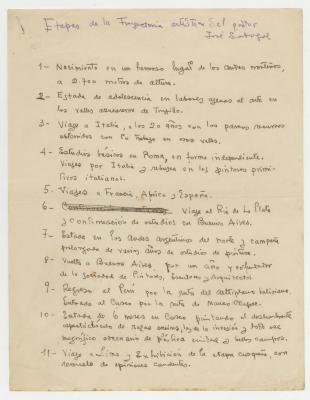 Etapas de la Trayectoria artística del pintor
José Sabogal
1- Nacimiento en un famoso lugar de los andes norteños,
a 2.700 metros de altura.
2- Estada de adolescencia en labores ajenas al arte en
los valles azucareros de Trujillo.
3- Viaje a Italia, a los 20 años con los parcos recursos
obtenidos con su trabajo en esos valles.
4- Estudios básicos en Roma, en forma independiente.
Viajes por Italia y rebusca en los pintores primi-
tivos italianos.
5- Viajes a Francia, Africa y España.
6- Viaje al Rio de La Plata
y continuación de estudios en Buenos Aires.
7- Estada en los Andes Argentinos del norte y campaña
prolongada de varios años de estudios de pintura.
8- Vuelta a Buenos Aires por un año y
de la Sociedad de Pintores, Escultores y Arquitectos.
9- Regreso al Perú por la ruta del Altiplano boliviano.
Entrada al Cusco por la ruta de Manco Ccapac.
10- Estada de 6 meses en Cusco pintando el deslumbrante
espectáculo de razas andina, la de la invasión y todo ese
magnífico escenario de plástica
11- Viaje a Lima y Exhibición de la etapa cusqueña, con
revuelo de opiniones candentes.